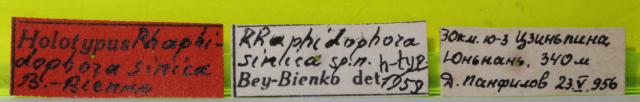 Holotypus Rhaphi-
dophora sinica
B.-Bienko
Rhaphidophora
sinica sp.n. h-type
Bey-Bienko det. 1959
30км. ю-з Цзиньпина,
Юньнань, 340 м
Д. Панфилов 23.V.956